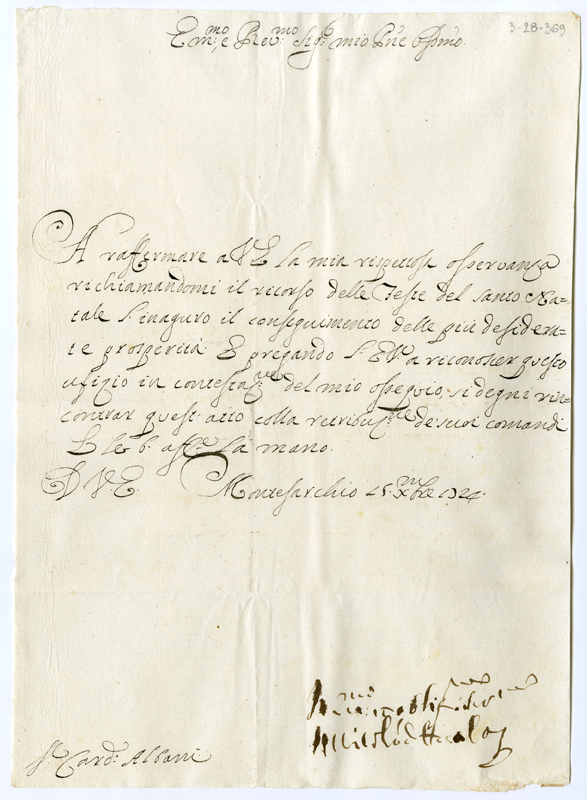 3-28-369
Em:mo e Rev:mo Sig:r mio Pñe Ossmo
A raffermare a V E la mia rispettosa osservanza
richiamandomi il ricorso delle Feste del Santo Na=
tale l'inaguro il conseguimento delle più desidera=
te prosperità. E pregando l'E V. a riconoscer questo
ufizio in contestaz:ne del mio ossequio, si degni rin=
contrar quest' atto colla retribuz:ne de suoi comandi
E le b. aff:te la mano.
D V. E. Montesarchio 25. Xbre 1724.
Nicolò d'Avalos
S:r Card: Albani